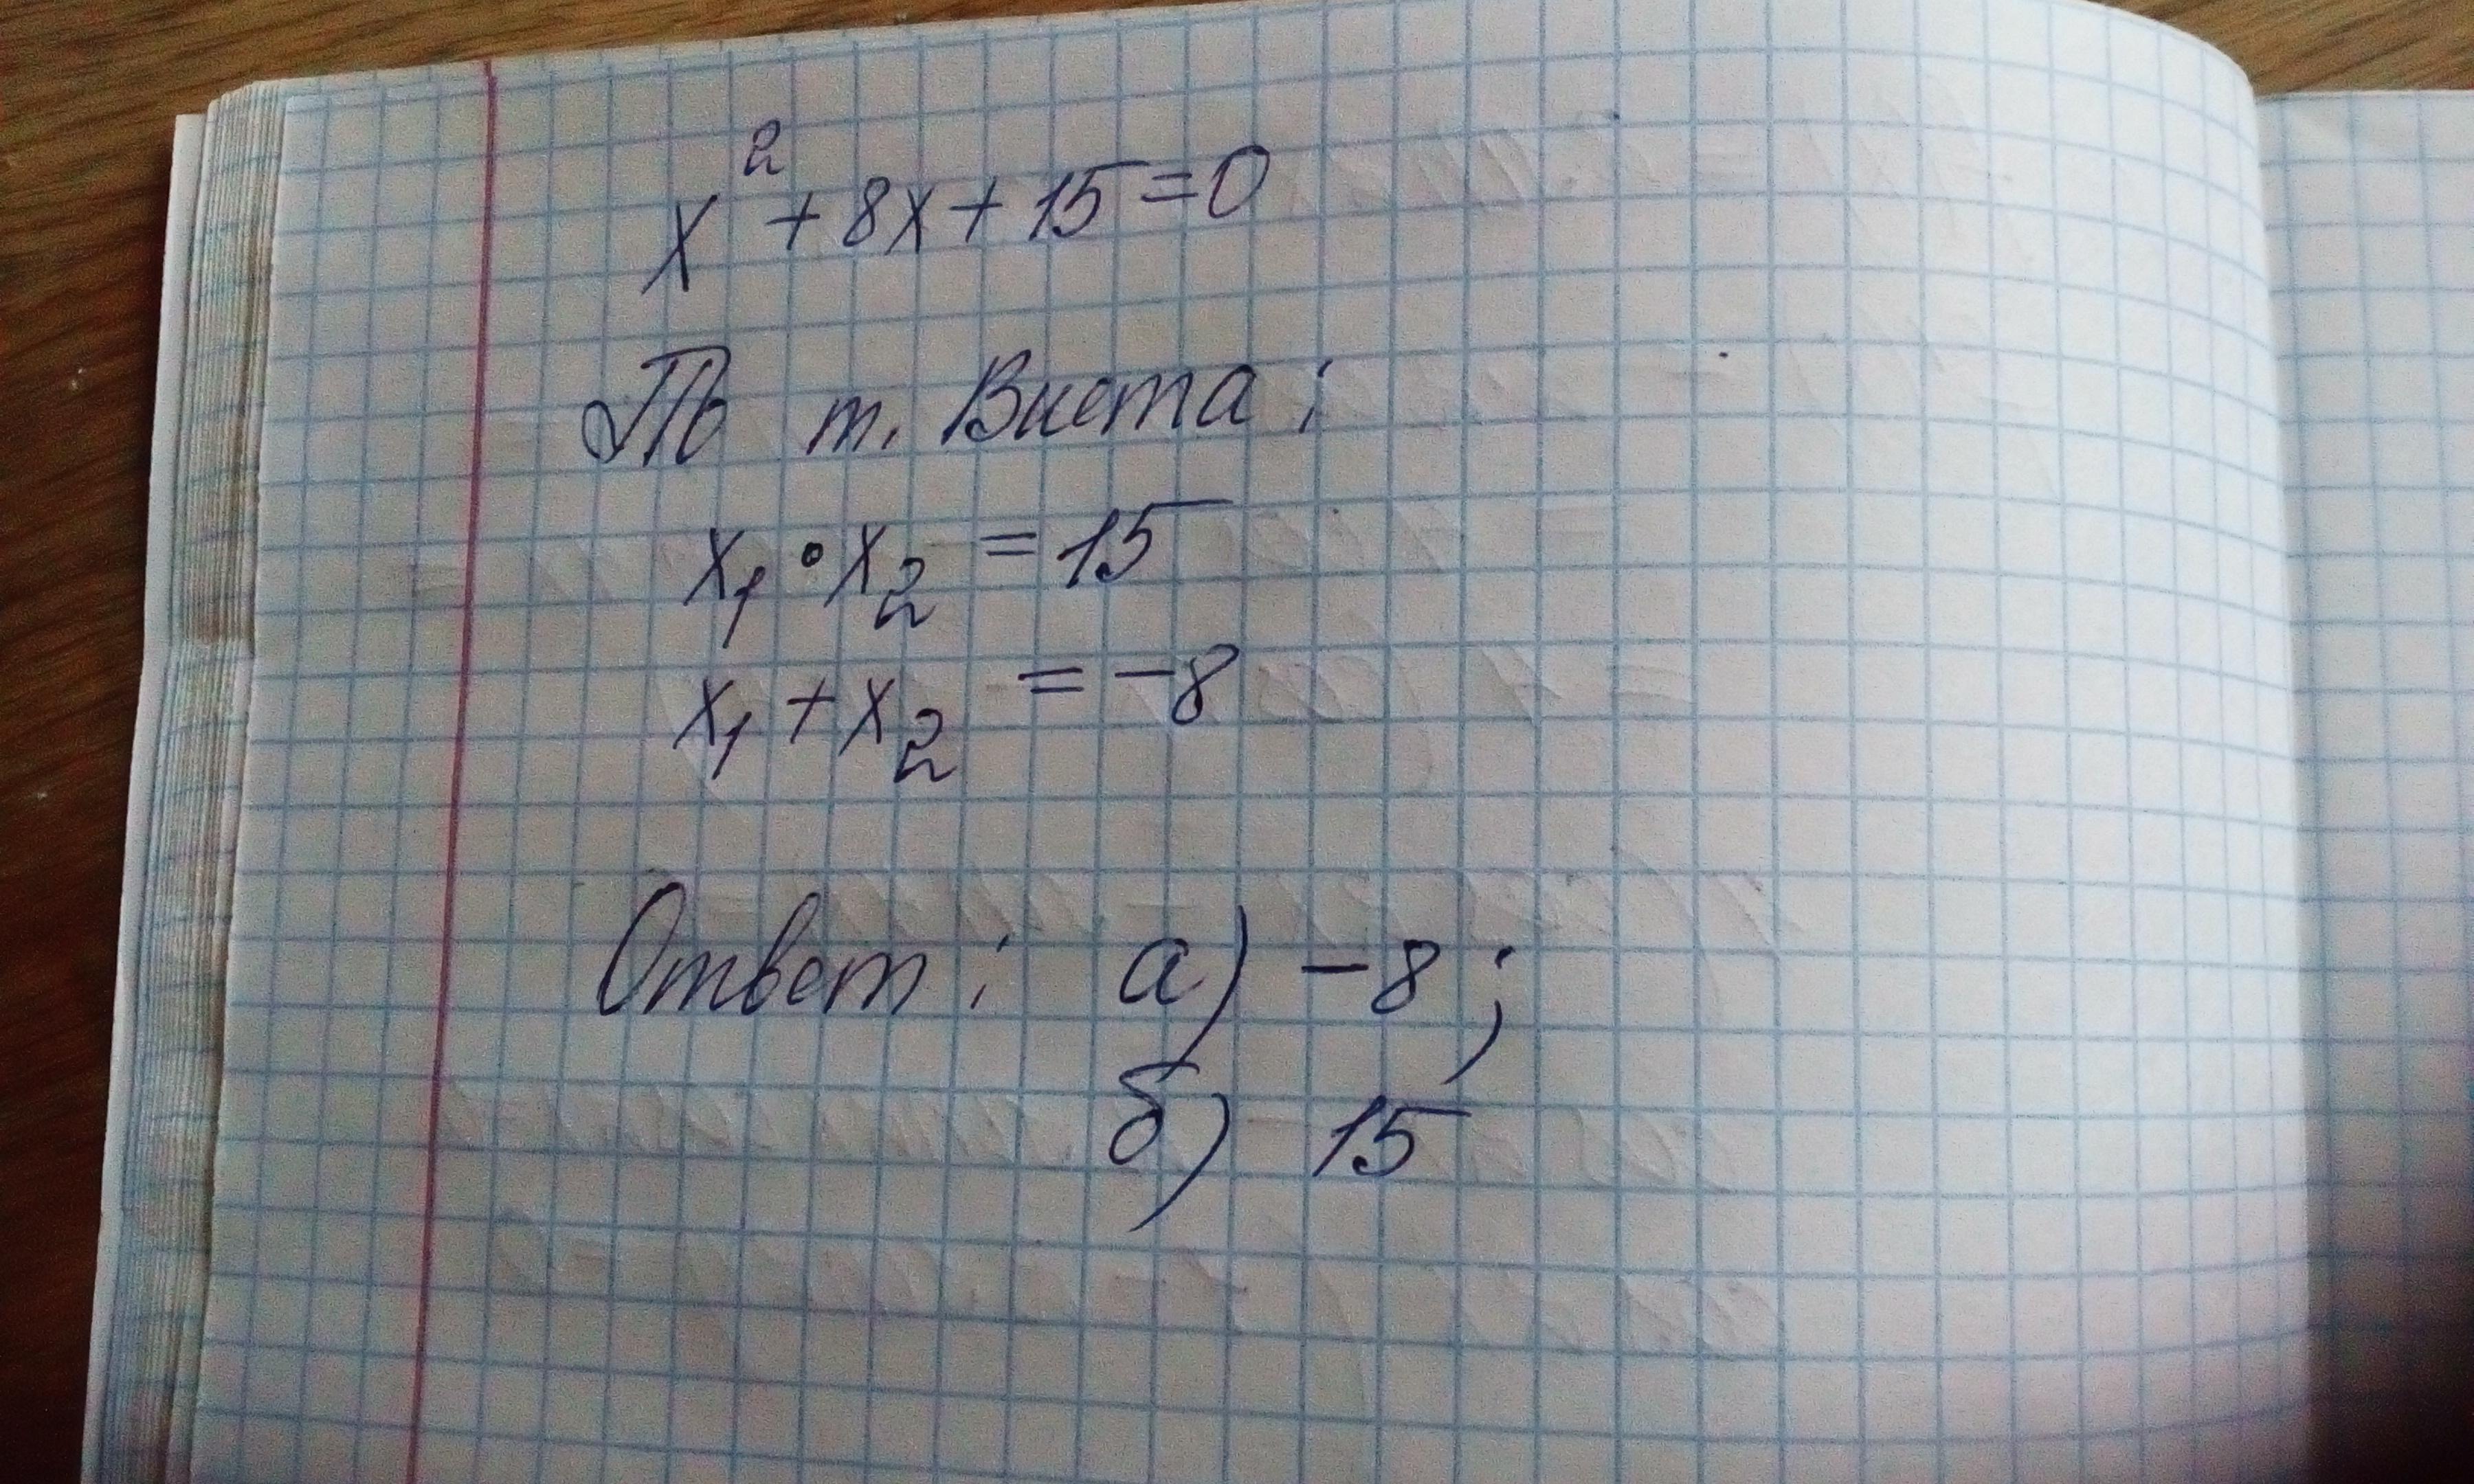 x² + 8x + 15 = 0
По т. Виета:
x₁ · x₂ = 15
x₁ + x₂ = -8
Ответ: а) -8;
б) 15